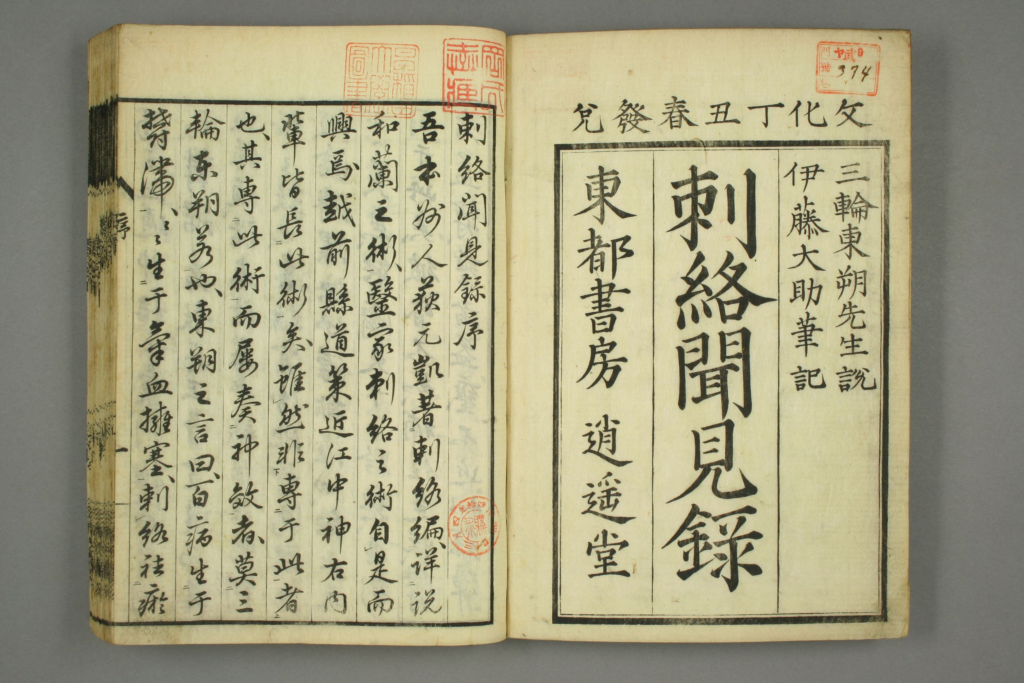 文化丁丑春發兌
三輪東朔先生説
伊藤大助筆記
刺絡聞見録
東都書房 逍遥堂
374
刺絡聞見録序
吾本州人荻元凱著刺絡編、詳説
和蘭之術、醫家刺絡之術自是而
興焉越前縣道策近江中神右内
輩皆長此術矣雖然非專于此者
也、其專此術而屡奏神效者、莫三
輪東朔若也、東朔之言曰、百病生于
欝滯、〻〻生于氣血擁塞、刺絡祛瘀
序
一